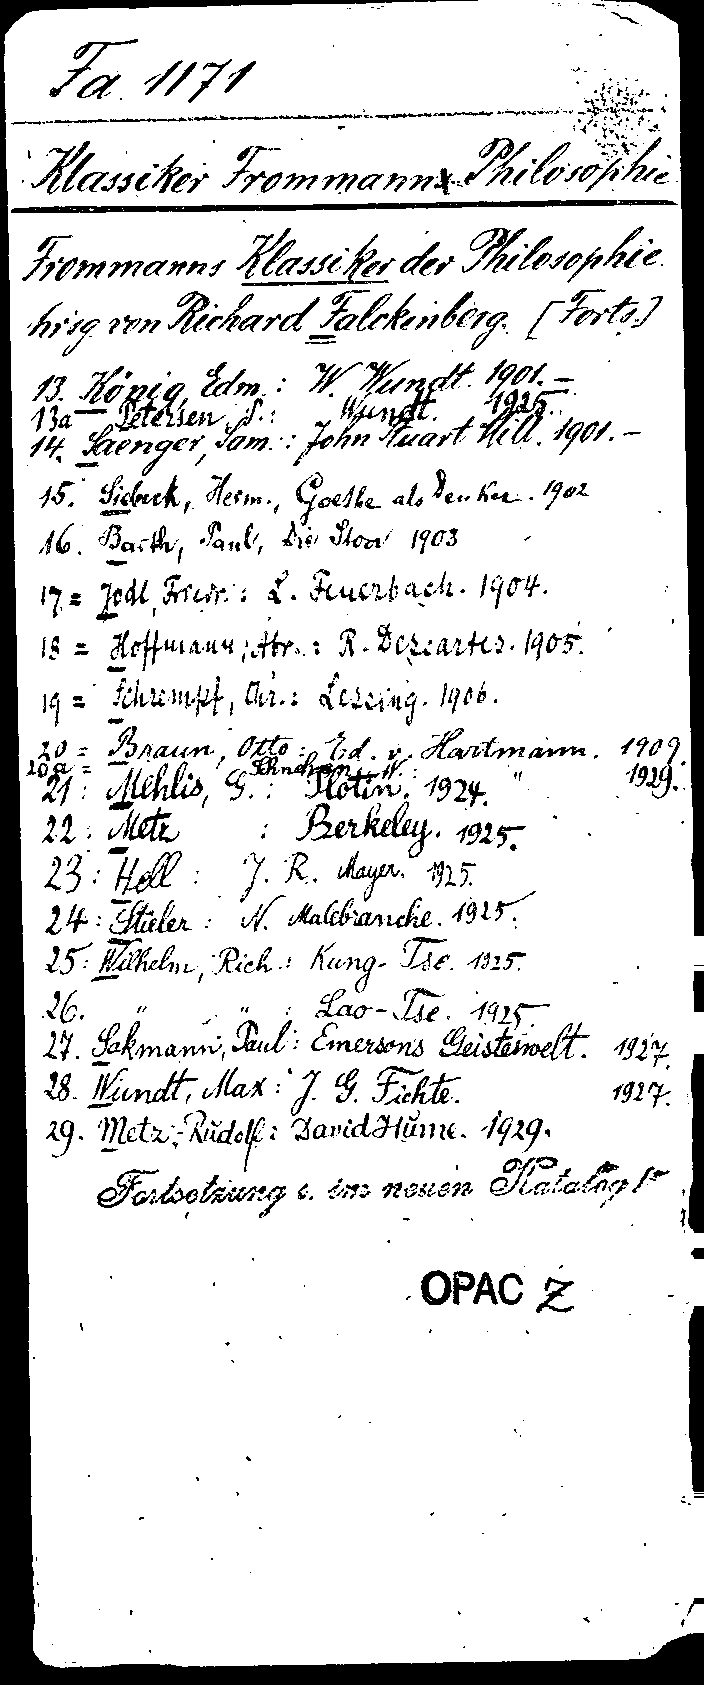 Fa 1171
Klassiker Frommanns Philosophie
Frommanns Klassiker der Philosophie
hrsg von Richard Falckenberg. [Forts.]
13. König, Edm.: W. Wundt. 1901. =
13a Petersen, P.: Wundt. 1925.
14. Saenger, Sam.: John Stuart Mill. 1901. -
15. Siebeck, Herm., Goethe als Denker. 1902
16. Barth, Paul, Die Stoa 1903
17 = Jodl, Friedr.: L. Feuerbach. 1904.
18 = Hoffmann, Abr.: R. Descartes. 1905.
19 = Schrempf, Chr.: Lessing. 1906.
20 = Braun, Otto: Ed. v. Hartmann. 1909.
20a = Schnehen, W. : " 1929.
21: Mehlis, G.: Plotin. 1924.
22: Metz : Berkeley. 1925.
23: Hell : J. R. Mayer. 1925.
24: Stieler: N. Malebranche. 1925.
25: Wilhelm, Rich.: Kung-Tse. 1925.
26. " " : Lao-Tse. 1925.
27. Sakmann, Paul: Emersons Geisteswelt. 1927.
28. Wundt, Max: J. G. Fichte. 1927.
29. Metz, Rudolf: David Hume. 1929.
Fortsetzung s. im neuen Katalog
OPAC Z